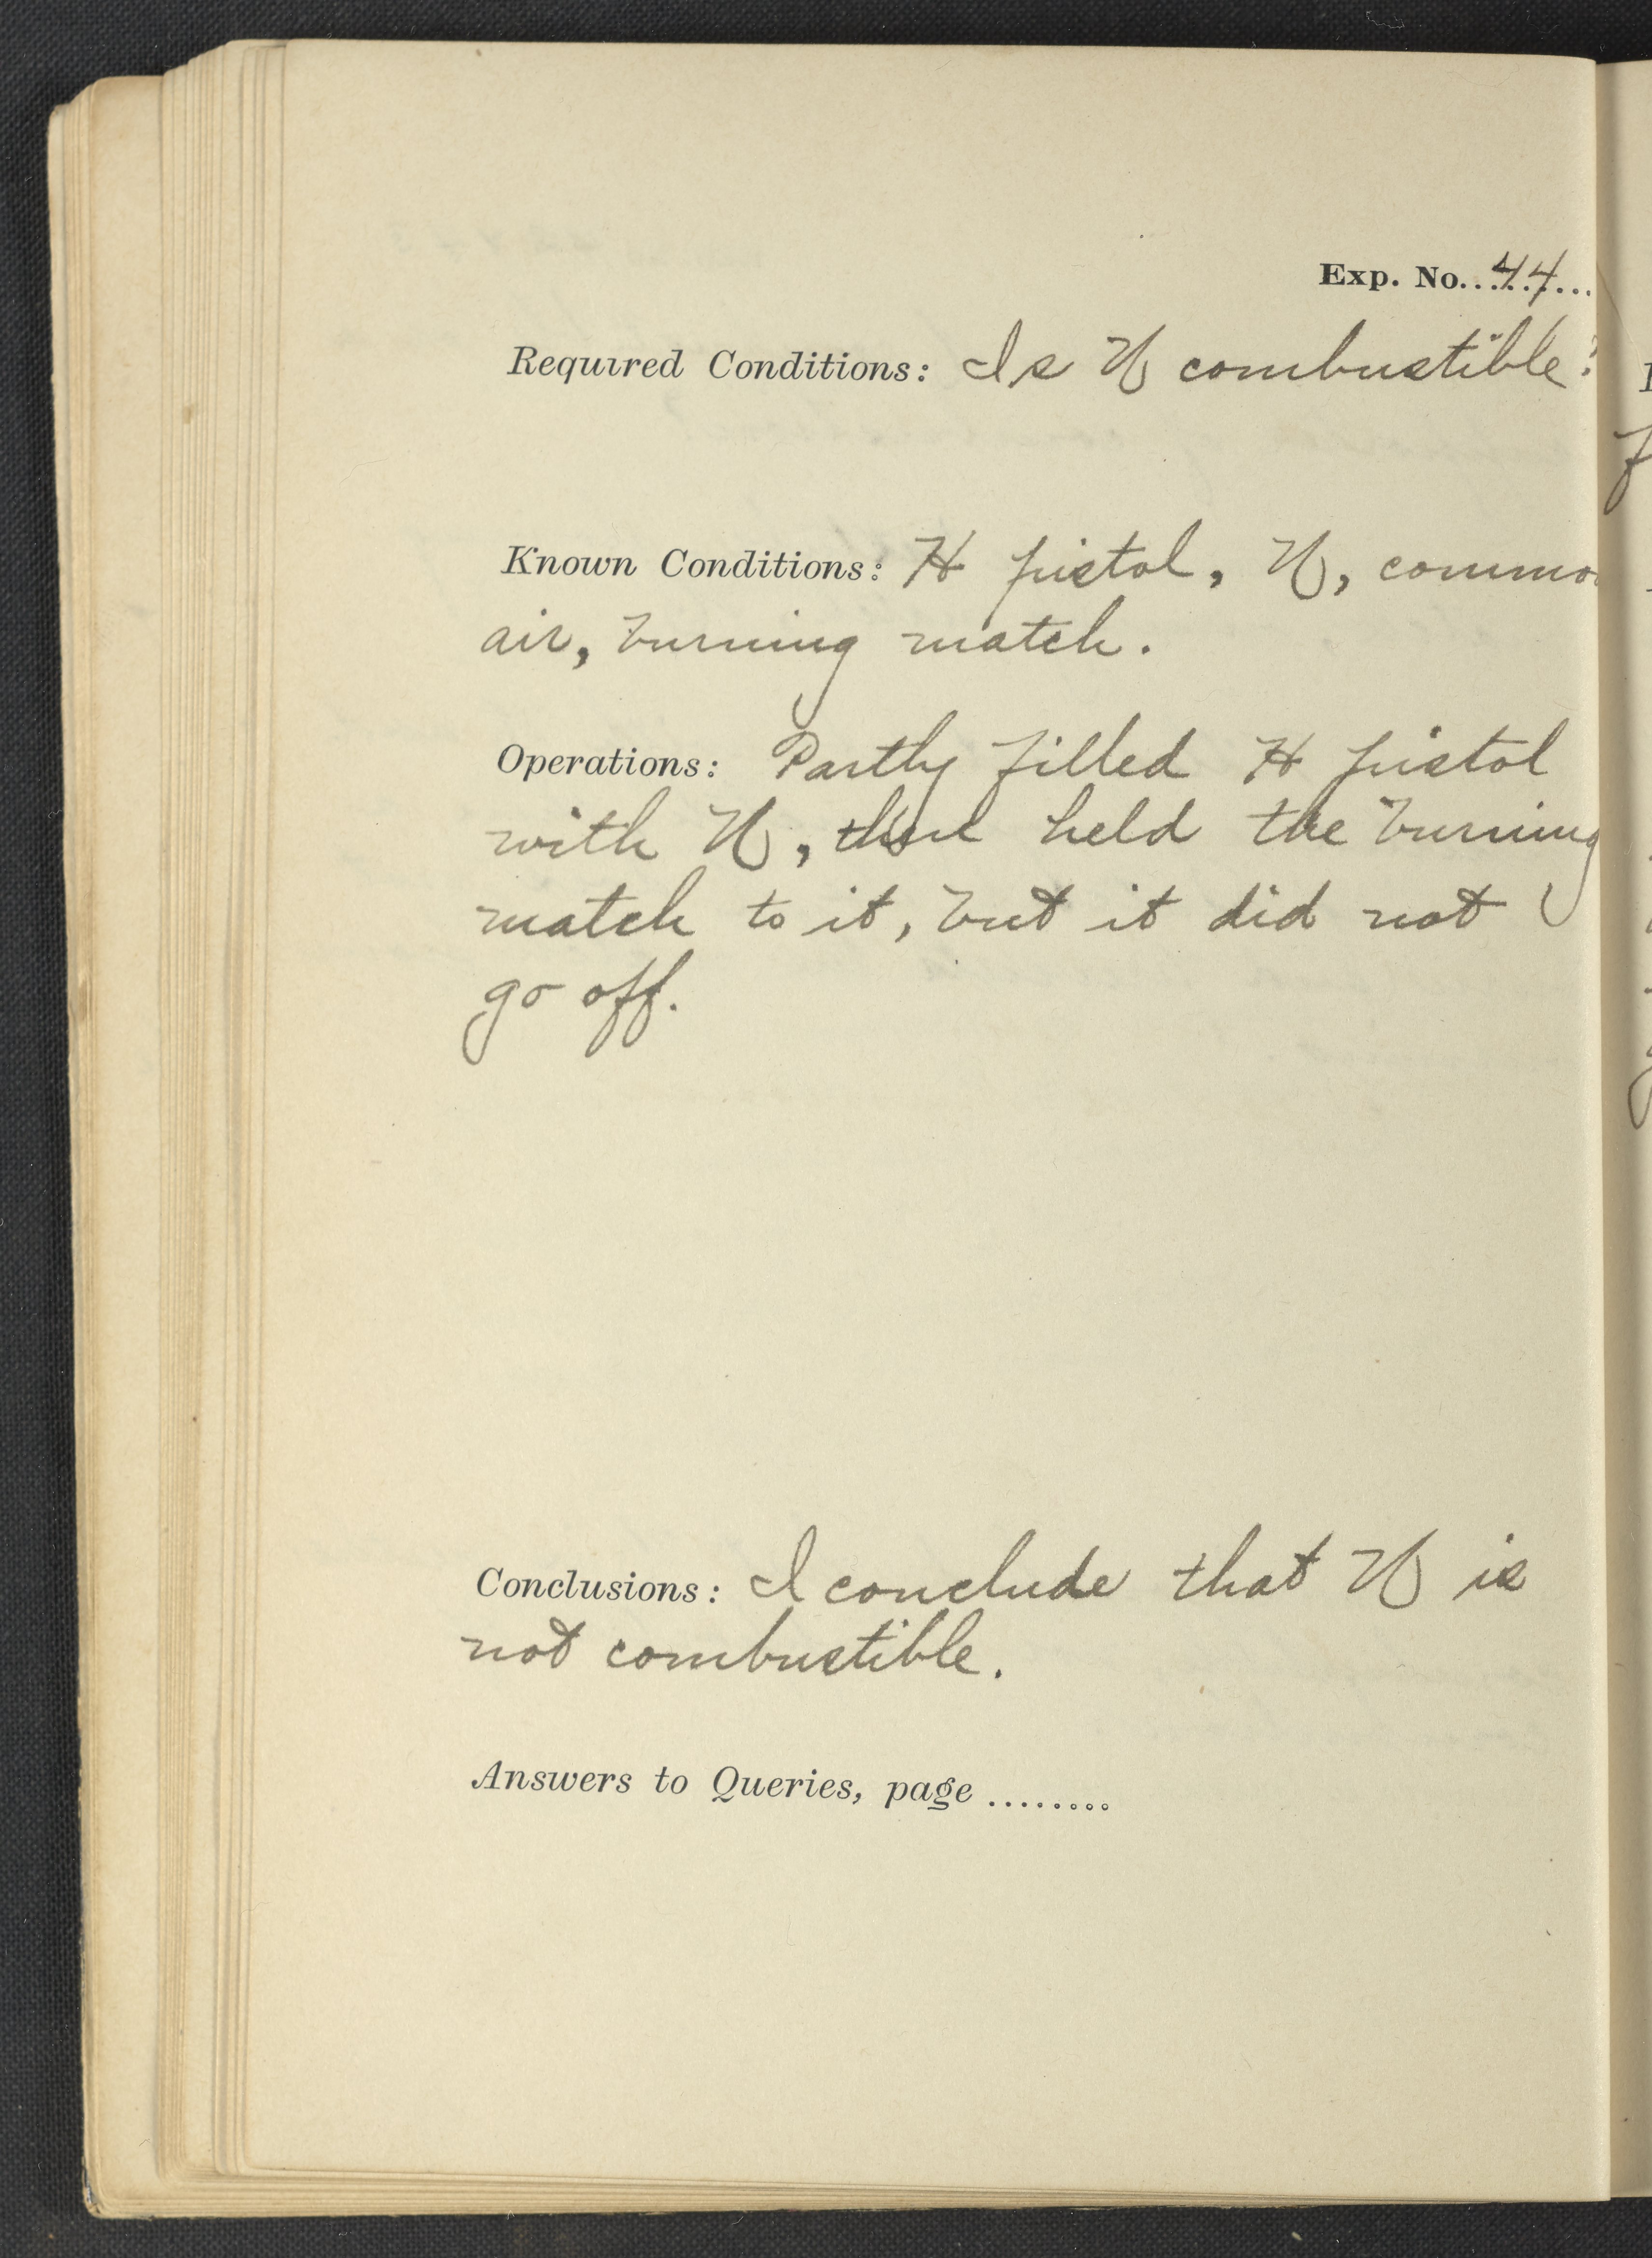 Exp. No. 44
Required Conditions: Is N combustible?
Known Conditions: H pistol, N, commo
air, burning match.
Operations: Partly filled H pistol
with N, then held the burning
match to it, but it did not
go off.
Conclusions: I conclude that N is
not combustible.
Answers to Queries, page ........